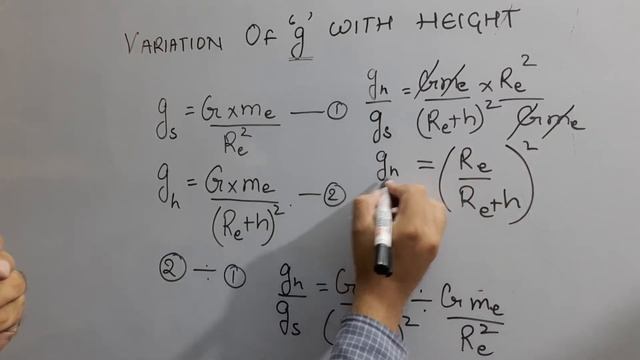 VARIATION OF 'g' WITH HEIGHT
g_s = G×m_e / R_e^2 — ①
g_h = G×m_e / (R_e+h)^2. — ②
② ÷ ① g_h / g_s = G / ( )^2 ÷ G m_e / R_e^2
g_h / g_s = G m_e / (R_e+h)^2 × R_e^2 / G m_e
g_h = (R_e / R_e+h)^2